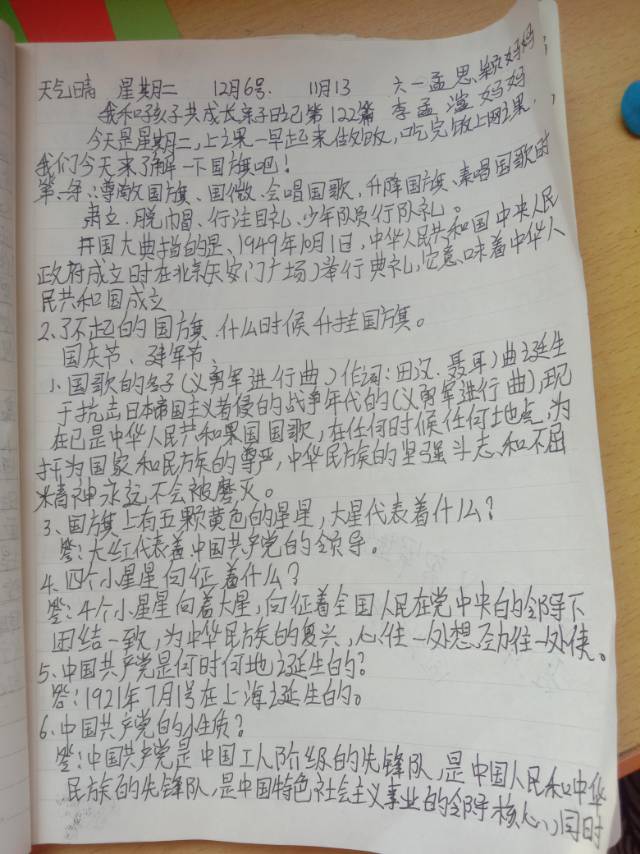 天气晴 星期二 12月6号. 11月13 六一孟思颖妈妈
我和孩子共成长亲子日记第122篇 李孟滢妈妈
今天是星期二,上课一早起来做饭,吃完饭上网课,
我们今天来了解一下国旗吧!
第一条:尊敬国旗、国徽.会唱国歌,升降国旗、奏唱国歌时
肃立.脱帽、行注目礼、少年队员行队礼。
开国大典指的是、1949年10月1日,中华人民共和国中央人民
政府成立日时在北京天安门广场)举行典礼,它意味着中华人
民共和国成立
2.了不起的国旗.什么时候升挂国旗。
国庆节、建军节、
1.国歌的名子(义勇军进行曲)作词:田汉.聂耳)曲诞生
于抗击日本帝国主义者侵的战争年代的(义勇军进行曲)现
在已是中华人民共和果国国歌,在任何时候任何地点,为
捍为国家和民族的尊严,中华民族的坚强斗志.和不屈
精神永远不会被磨灭。
3、国旗上有五颗黄色的星星,大星代表着什么?
答:大红代表着中国共产党的领导。
4.四个小星星向征着什么?
答:4个小星星向着大星,向征着全国人民在党中央的领导下
团结一致,为中华民族的复兴,心往一处想劲往一处使。
5、中国共产党是何时何地诞生的?
答:1921年7月1号在上海诞生的。
6、中国共产党的性质?
答:中国共产党是中国工人阶级的先锋队,是中国人民和中华
民族的先锋队,是中国特色社会主义事业的领导核心)同时